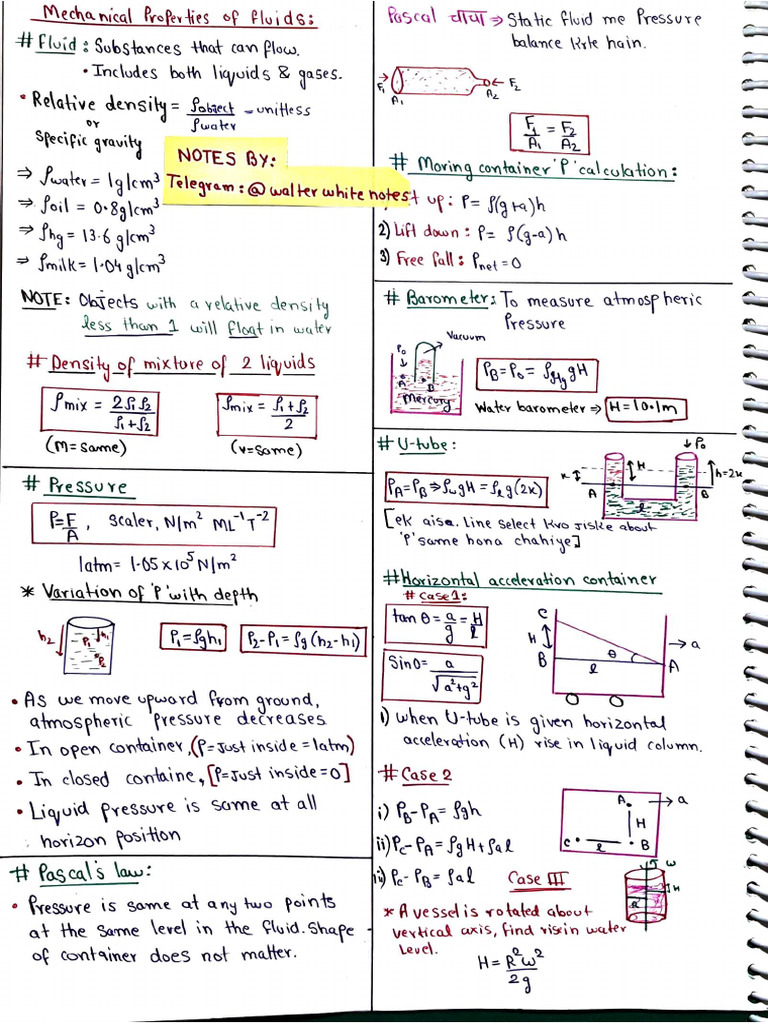 Mechanical Properties of fluids:
# Fluid: Substances that can flow.
• Includes both liquids & gases.
• Relative density = ρobject / ρwater - unitless
or
Specific gravity
NOTES BY:
Telegram: @ walter white notes
⇒ ρwater = 1g/cm³
⇒ ρoil = 0.8g/cm³
⇒ ρhg = 13.6 g/cm³
⇒ ρmilk = 1.04 g/cm³
NOTE: Objects with a relative density
less than 1 will float in water
# Density of mixture of 2 liquids
ρmix = 2ρ1ρ2 / ρ1+ρ2
(m=same)
ρmix = ρ1+ρ2 / 2
(v=same)
# Pressure
P=F/A, Scaler, N/m² ML⁻¹T⁻²
1atm = 1.05×10⁵ N/m²
* Variation of 'P' with depth
h2
P1 h1
P2
P1=ρgh1
P2-P1=ρg(h2-h1)
• As we move upward from ground,
atmospheric pressure decreases
• In open container, (P=Just inside=1atm)
• In closed containe, [P=Just inside=0]
• Liquid pressure is same at all
horizon position
# Pascal's law:
• Pressure is same at any two points
at the same level in the fluid. Shape
of container does not matter.
Pascal चाचा ⇒ Static fluid me Pressure
balance krte hain.
F1 A1 A2 F2
F1/A1 = F2/A2
# Moring container 'P' calculation:
t up: P= ρ(g+a)h
2) Lift down: P= ρ(g-a)h
3) Free fall: Pnet=0
# Barometer: To measure atmospheric
Pressure
Vacuum
P0
A B
Mercury
PB=P0= ρHg gH
Water barometer ⇒ H=10.1m
# U-tube:
P0
x H h=2x
A l B
PA=PB ⇒ ρwgH=ρlg(2x)
[ek aisa. Line select kro jiske about
'P' same hona chahiye]
# Horizontal acceleration container
# case1:
tanθ = a/g = H/l
Sinθ= a/√a²+g²
C
H
B
θ
l
A
→ a
i) when U-tube is given horizontal
acceleration (H) rise in liquid column.
# Case 2
i) PB-PA= ρgh
ii) PC-PA= ρgH+ρal
iii) PC-PB= ρal
A → a
H
C l B
Case III
w
H
R
* A vessel is rotated about
vertical axis, find rise in water
level.
H= R²ω² / 2g